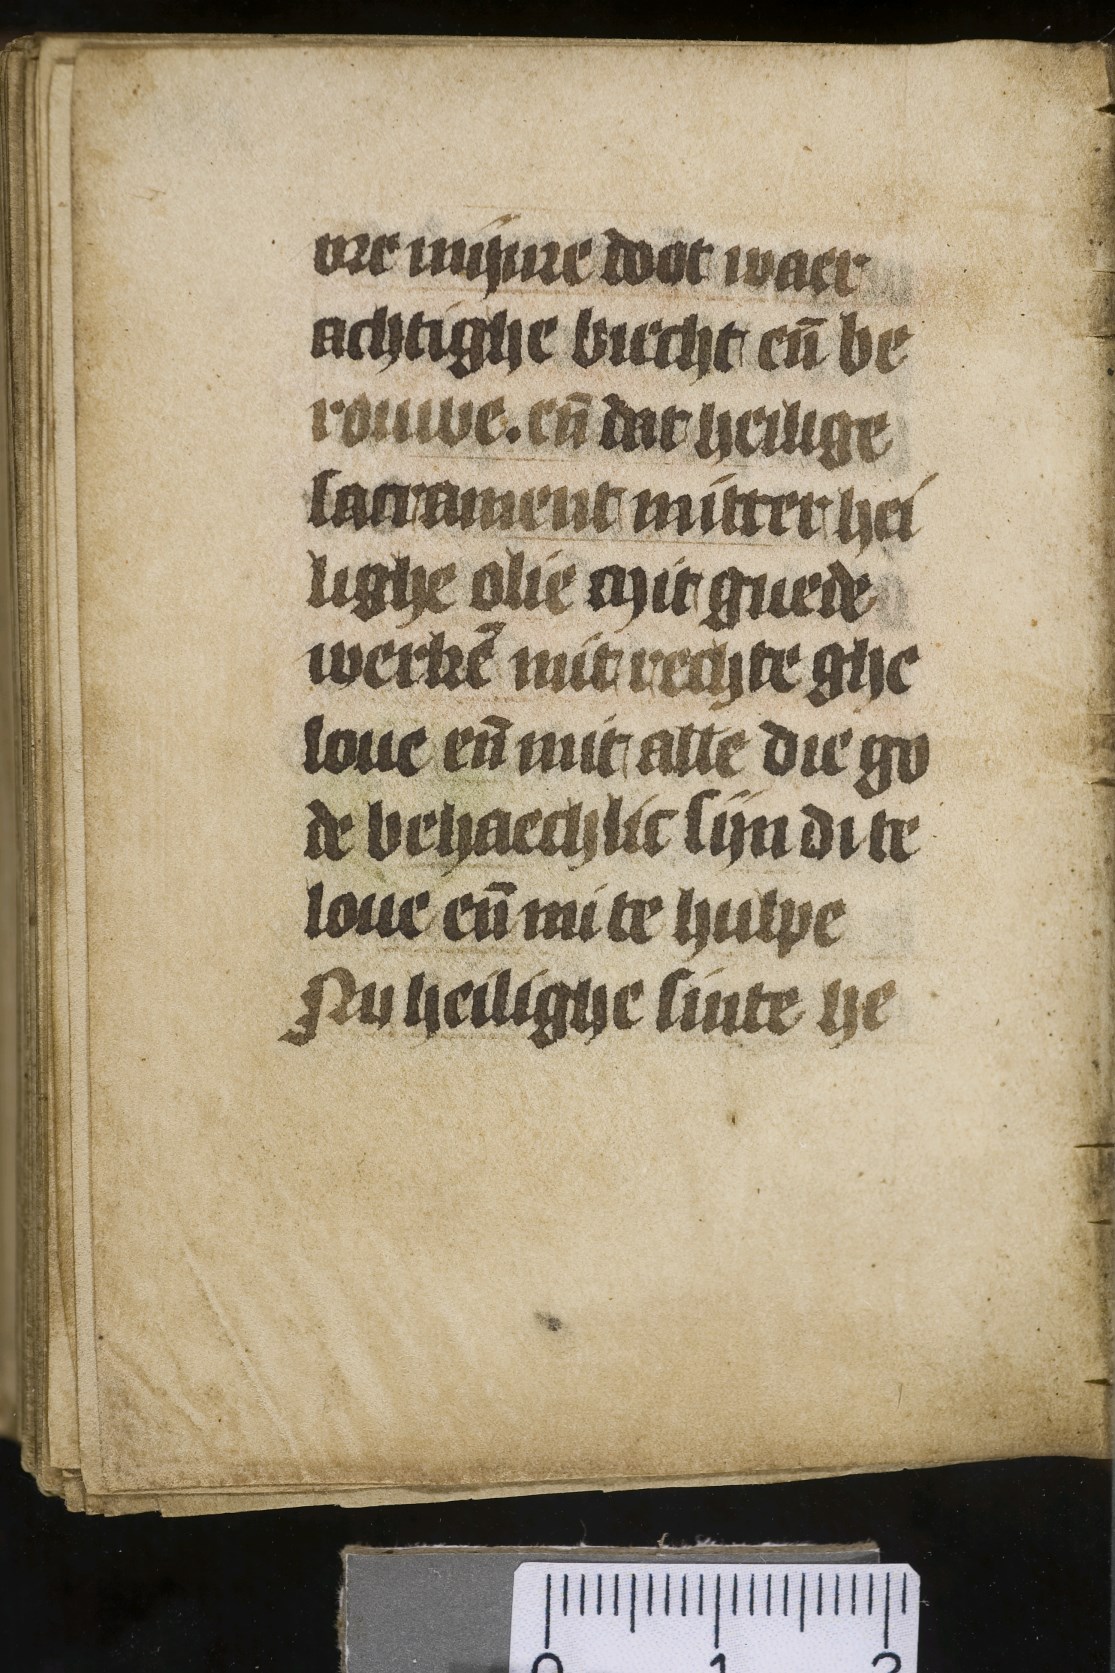 ore mijnre doot waer
achtighe biecht en̄ be
rouwe. en̄ dat heilige
sacrament mitter hei
lighe olie mit guede
werkē mit rechte ghe
loue en̄ mit alle die go
de behaechlic sijn di te
loue en̄ mi te hulpe
Nv heilighe sinte he
0 1 2